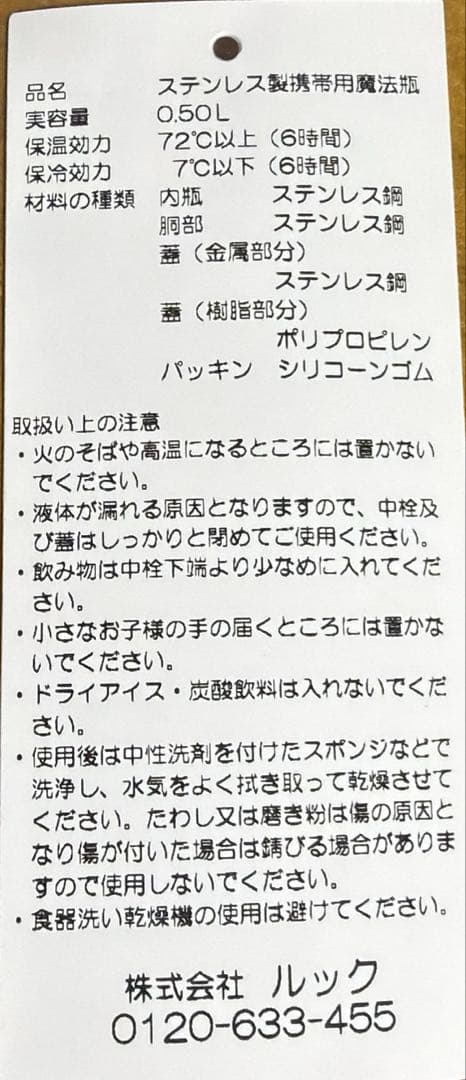 品名 ステンレス製携帯用魔法瓶
実容量 0.50L
保温効力 72℃以上(6時間)
保冷効力 7℃以下(6時間)
材料の種類 内瓶 ステンレス鋼
胴部 ステンレス鋼
蓋(金属部分)
ステンレス鋼
蓋(樹脂部分)
ポリプロピレン
パッキン シリコーンゴム
取扱い上の注意
・火のそばや高温になるところには置かない
でください。
・液体が漏れる原因となりますので、中栓及
び蓋はしっかりと閉めてご使用ください。
・飲み物は中栓下端より少なめに入れてくだ
さい。
・小さなお子様の手の届くところには置かな
いでください。
・ドライアイス・炭酸飲料は入れないでくだ
さい。
・使用後は中性洗剤を付けたスポンジなどで
洗浄し、水気をよく拭き取って乾燥させて
ください。たわし又は磨き粉は傷の原因と
なり傷が付いた場合は錆びる場合がありま
すので使用しないでください。
・食器洗い乾燥機の使用は避けてください。
株式会社 ルック
0120-633-455